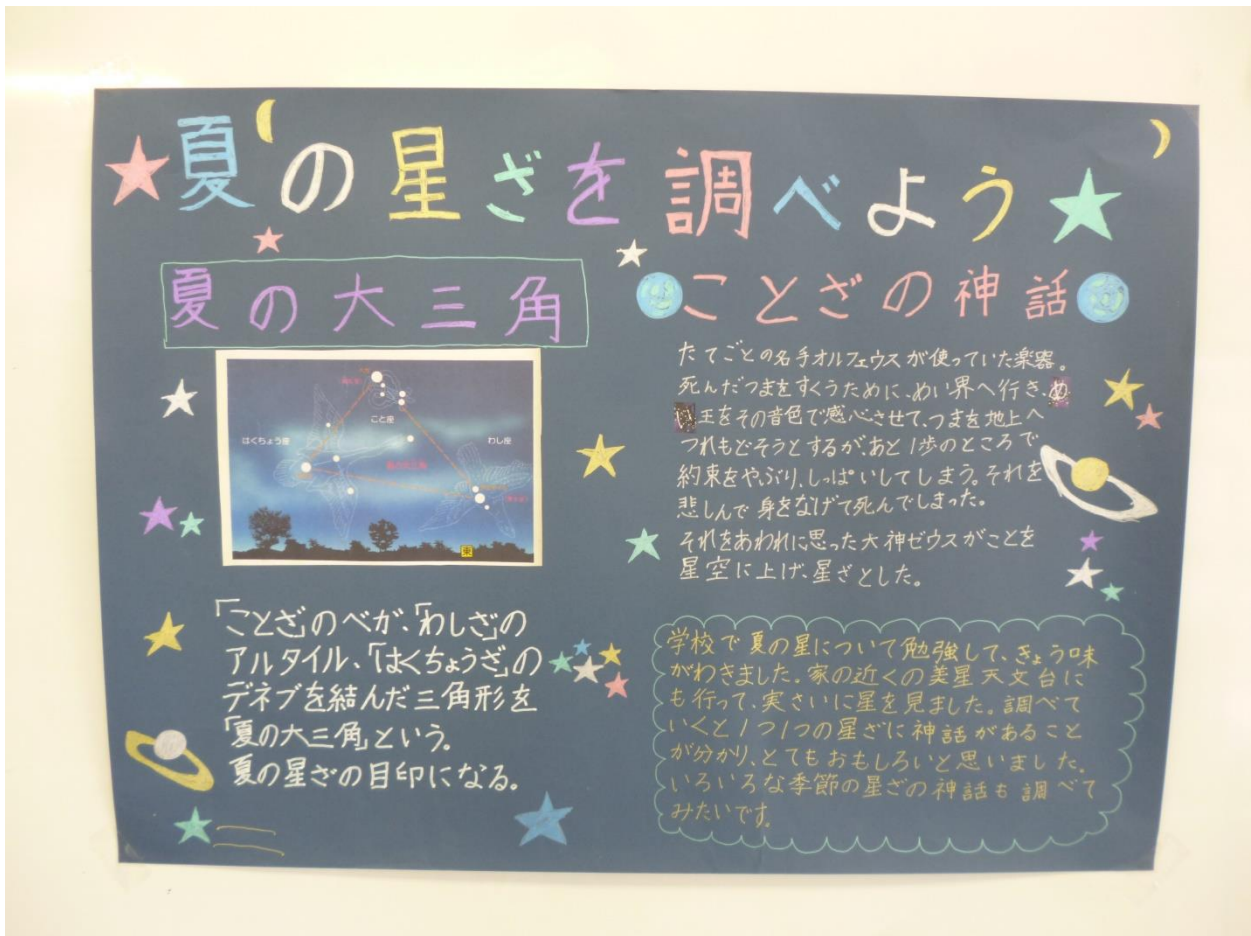 夏の星ざを調べよう
夏の大三角
こと座
はくちょう座
わし座
東
「ことざ」のベガ、「わしざ」の
アルタイル、「はくちょうざ」の
デネブを結んだ三角形を
「夏の大三角」という。
夏の星ざの目印になる。
ことざの神話
たてごとの名手オルフェウスが使っていた楽器。
死んだつまをすくうために、めい界へ行き、め
い王をその音色で感心させて、つまを地上へ
つれもどそうとするが、あと1歩のところで
約束をやぶり、しっぱいしてしまう。それを
悲しんで身をなげて死んでしまった。
それをあわれに思った大神ゼウスがことを
星空に上げ、星ざとした。
学校で夏の星について勉強して、きょう味
がわきました。家の近くの美星天文台に
も行って、実さいに星を見ました。調べて
いくと1つ1つの星ざに神話があること
が分かり、とてもおもしろいと思いました。
いろいろな季節の星ざの神話も調べて
みたいです。